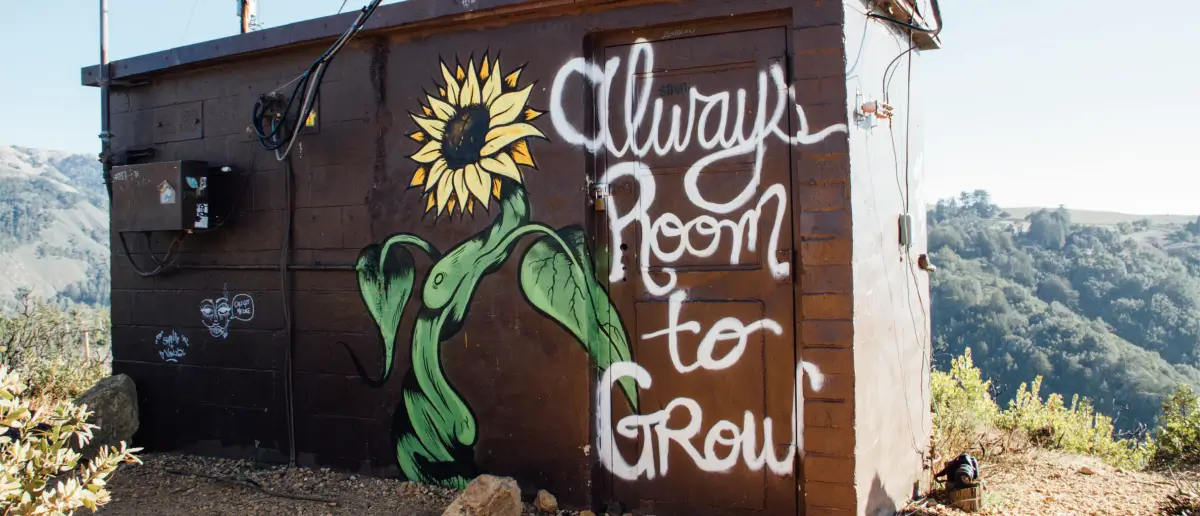 Always
Room
to
GROW